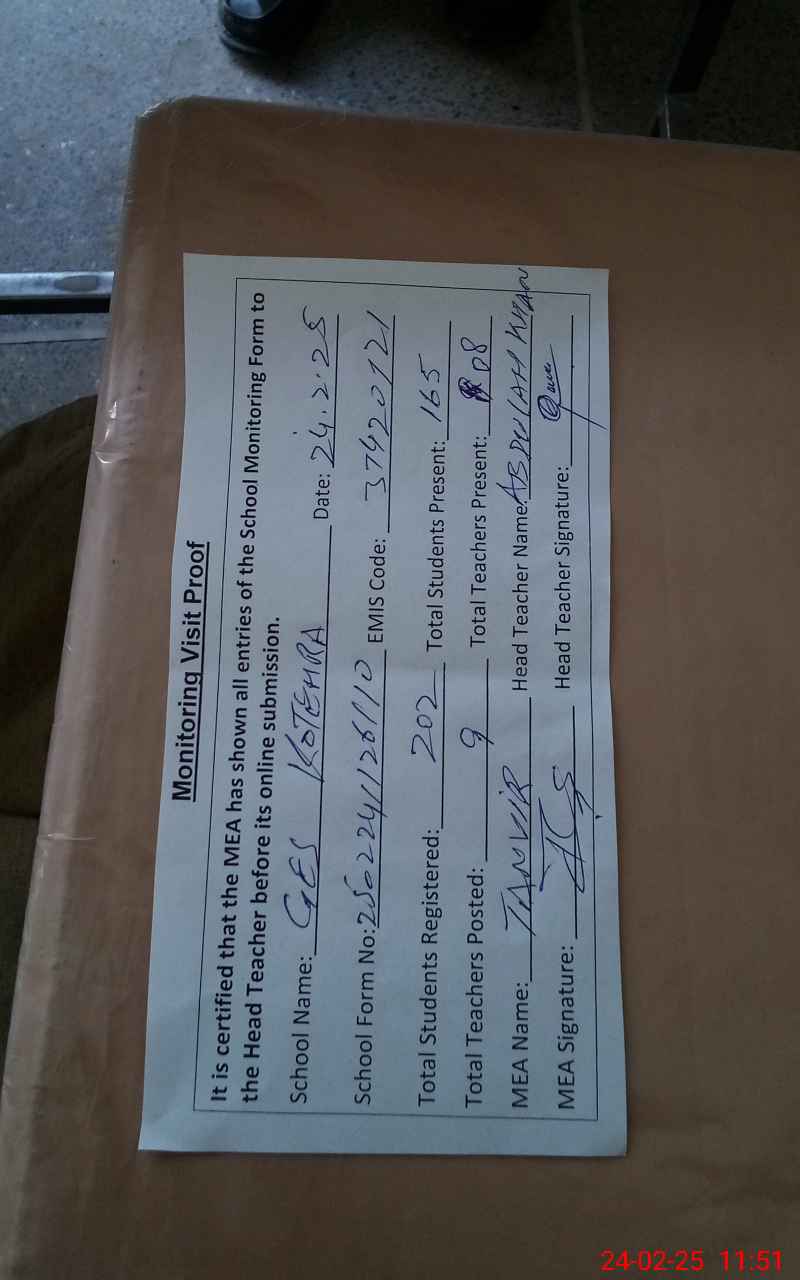 Monitoring Visit Proof
It is certified that the MEA has shown all entries of the School Monitoring Form to
the Head Teacher before its online submission.
School Name: GES KOTEHRA Date: 24.2.25
School Form No: 2502241126110 EMIS Code: 37420121
Total Students Registered: 202 Total Students Present: 165
Total Teachers Posted: 9 Total Teachers Present: 08
MEA Name: TANVIR Head Teacher Name: ABDULAH KHAN
MEA Signature: Head Teacher Signature:
24-02-25 11:51